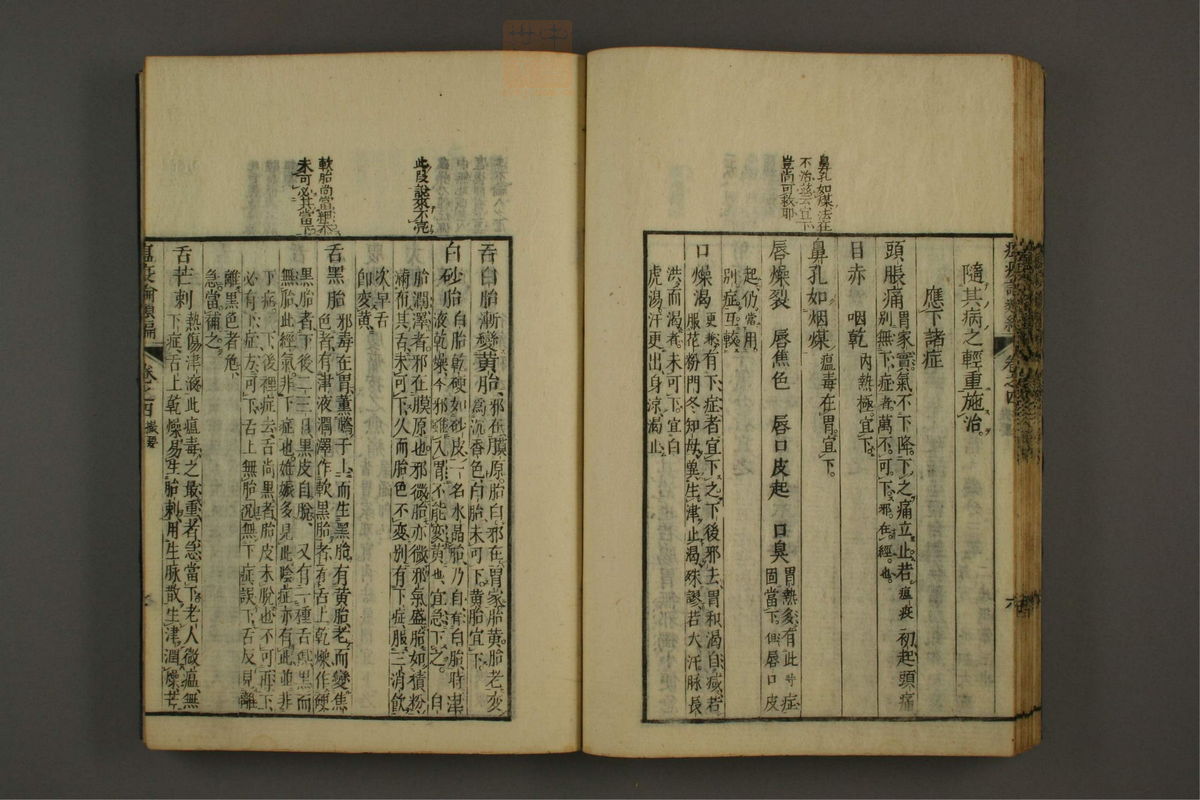 鼻孔如煤法在
不治茲云宜下
豈尚可救耶
隨其病之輕重施治
應下諸症
頭脹痛 胃家實氣不下降下之痛立止若瘟疫初起頭痛
別無下症者萬不可下邪在經也
目赤 咽乾 內熱極宜下
鼻孔如烟煤 瘟毒在胃宜下
唇燥裂 唇焦色 唇口皮起 口臭 胃熱多有此等症
固當下但唇口皮
起仍當用
別症互較
口燥渴 更兼有下症者宜下之下後邪去胃和渴自減若
服花粉門冬知母冀生津止渴殊謬若大汗脉長
洪而渴者未可下宜白
虎湯汗更出身涼渴止
六
此段說來不亮
軟胎尚當細求
未可必其當下
舌白胎漸變黃胎 邪在膜原胎白邪在胃家胎黃胎老変
爲沉香色白胎未可下黃胎宜下
白砂胎 白胎乾硬如砂皮一名水晶胎乃自有白胎時津
液乾燥今邪雖入胃不能変黃也宜急下之 白
胎潤澤者邪在膜原也邪微胎亦微邪氣盛胎如積粉
滿布其舌未可下久而胎色不変別有下症服三消飲
次早舌
卽変黃
舌黑胎 邪毒在胃薰騰于上而生黑胎有黃胎老而變焦
色者有津液潤澤作軟黑胎者有舌上乾燥作硬
黑胎者下後二三日黑皮自脫 又有一種舌俱黑而
無胎此經氣非下症也姙娠多見此陰症亦有此並非
下症 下後裡症去舌尚黑者胎皮未脫也不可再下
必有下症方可下 舌上無胎況無下症誤下舌反見離
離黑色者危
急當補之
舌芒刺 熱傷津液此瘟毒之最重者急當下老人微瘟無
下症舌上乾燥易生胎刺用生脉散生津潤燥芒
瘟疫論類編 卷之四 撮要